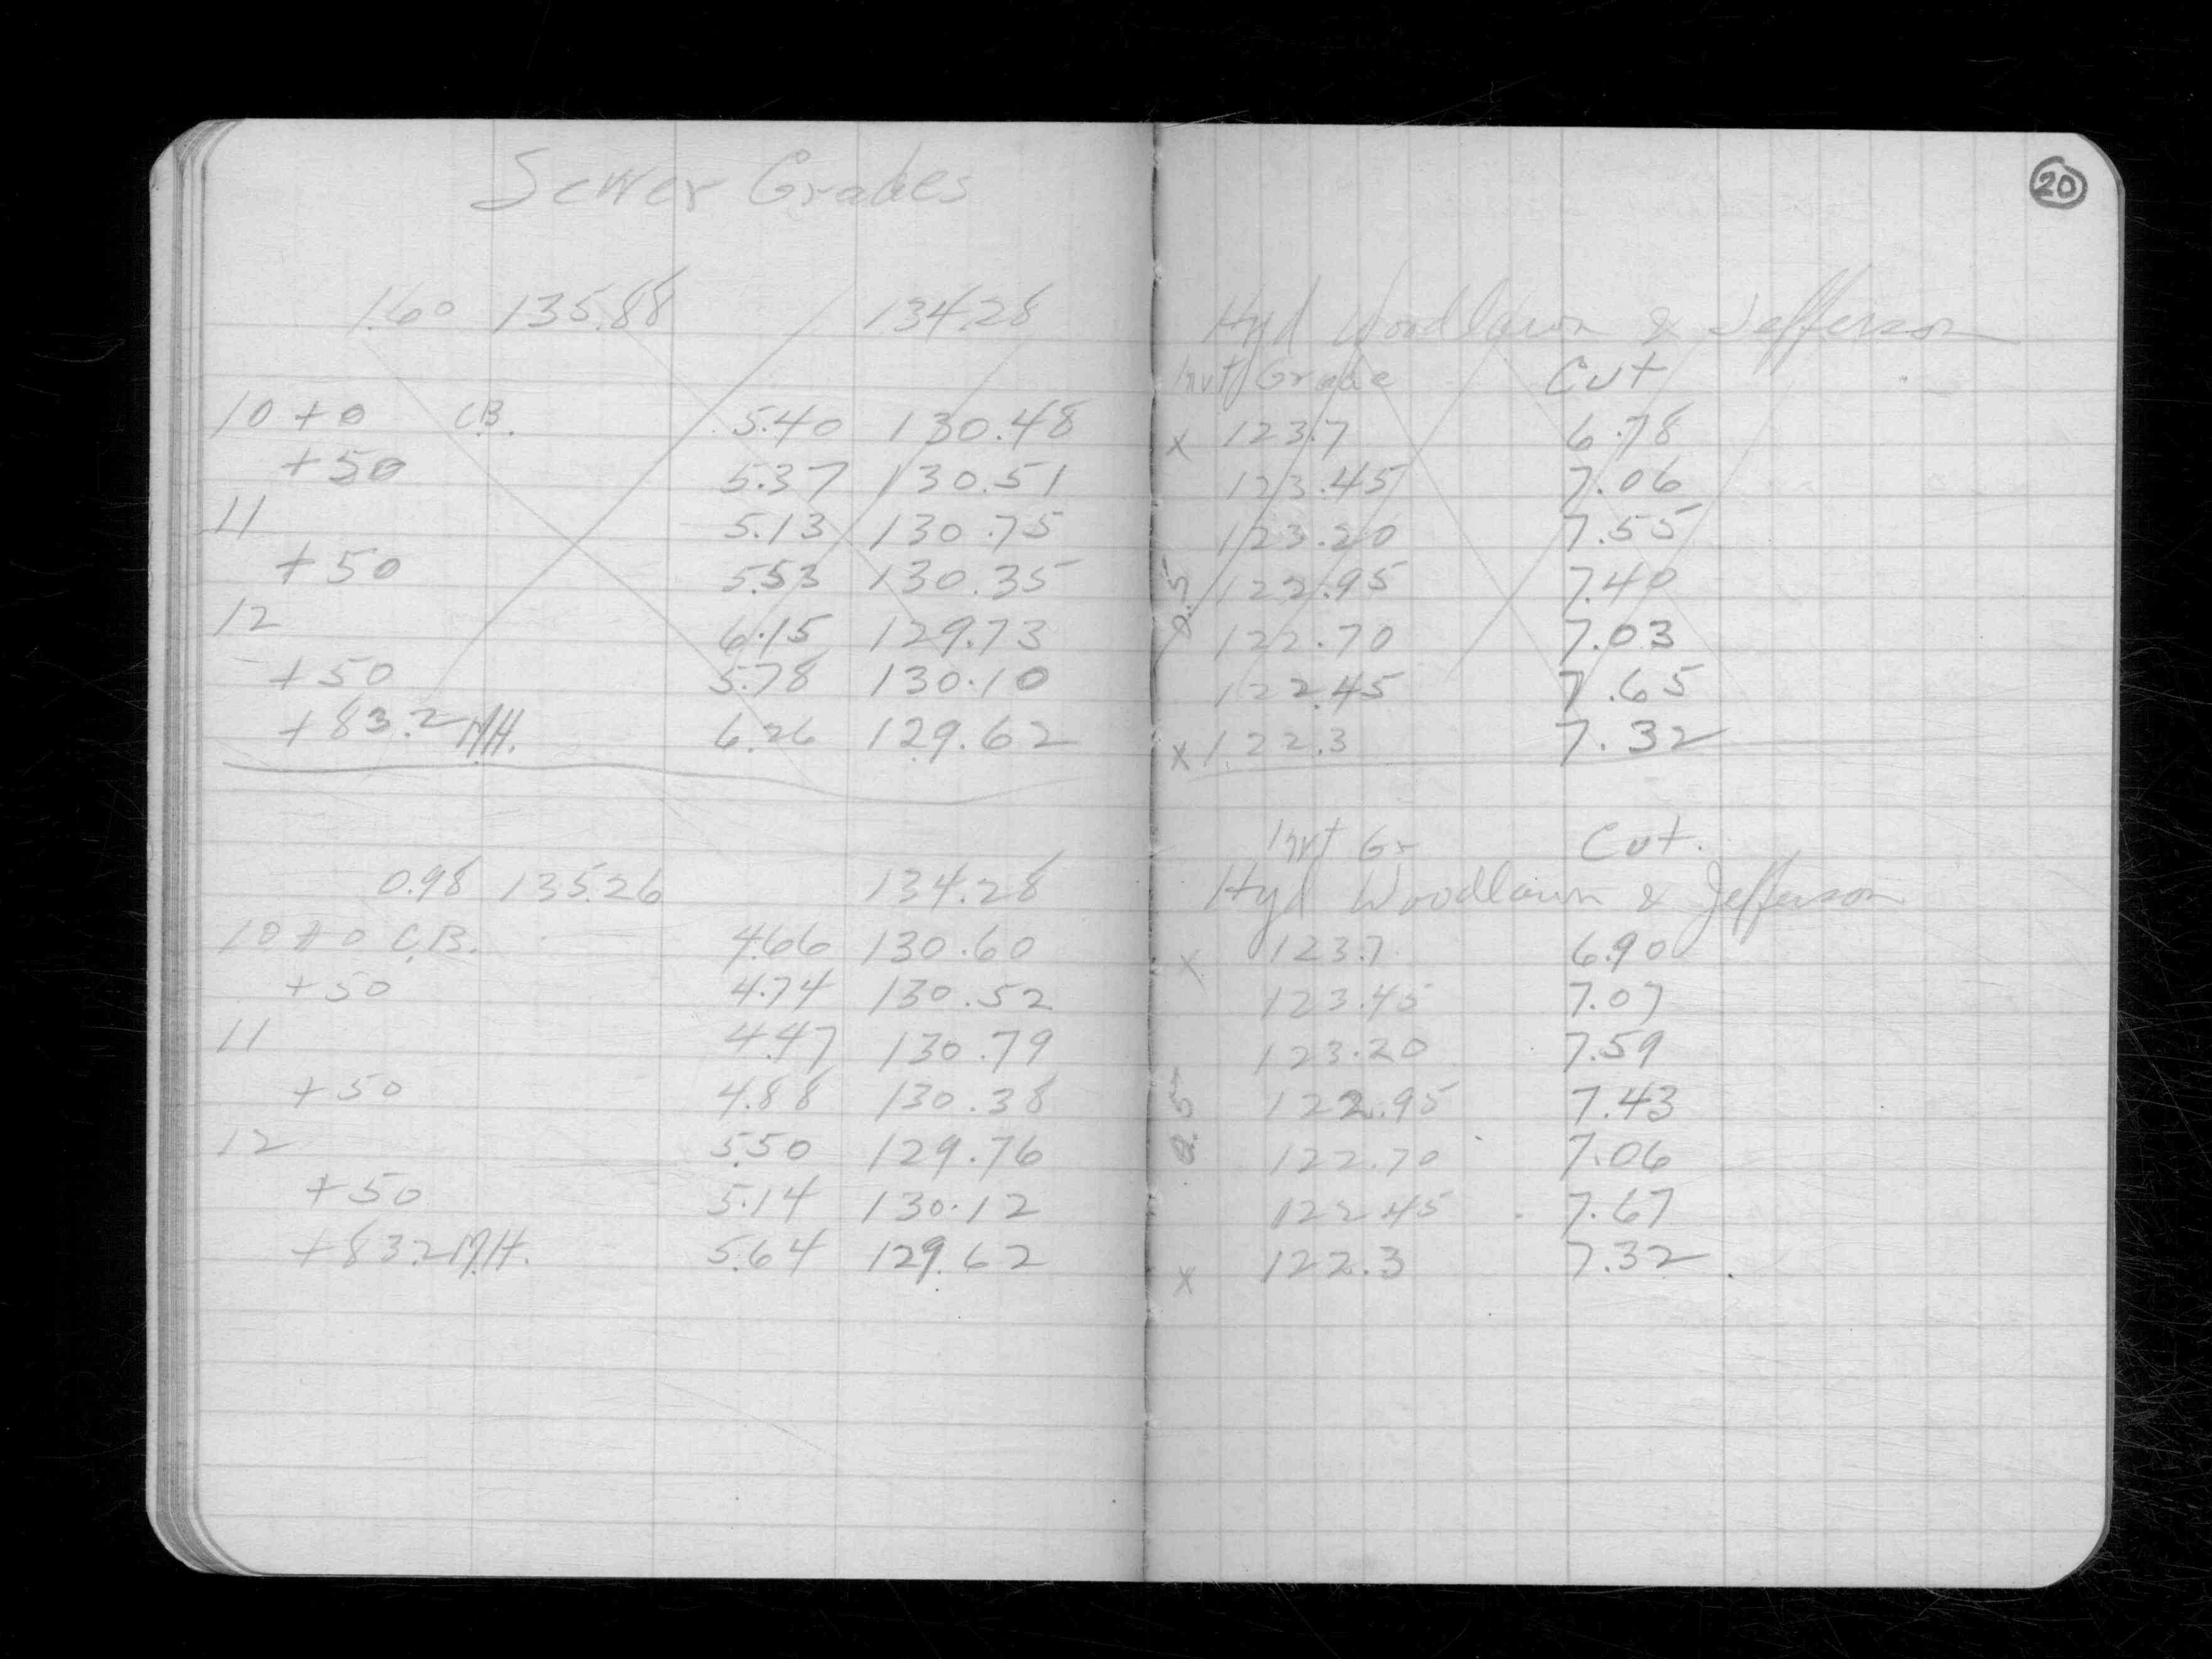 Sewer Grades
20
1.60 135.88 134.28 Hyd Woodlawn & Jefferson
Invt Grade Cut
10+0 C.B. 5.40 130.48 x 123.7 6.78
+50 5.37 130.51 123.45 7.06
11 5.13 130.75 123.20 7.55
+50 5.53 130.35 122.95 7.40
0.5
12 6.15 129.73 122.70 7.03
+50 5.78 130.10 122.45 7.65
+83.2 M.H. 6.26 129.62 x 122.3 7.32
Invt Gr Cut.
0.98 135.26 134.28 Hyd Woodlawn & Jefferson
10+0 C.B. 4.66 130.60 x 123.7 6.90
+50 4.74 130.52 123.45 7.07
11 4.47 130.79 123.20 7.59
+50 4.88 130.38 122.95 7.43
0.5
12 5.50 129.76 122.70 7.06
+50 5.14 130.12 122.45 7.67
+83.2 M.H. 5.64 129.62 x 122.3 7.32